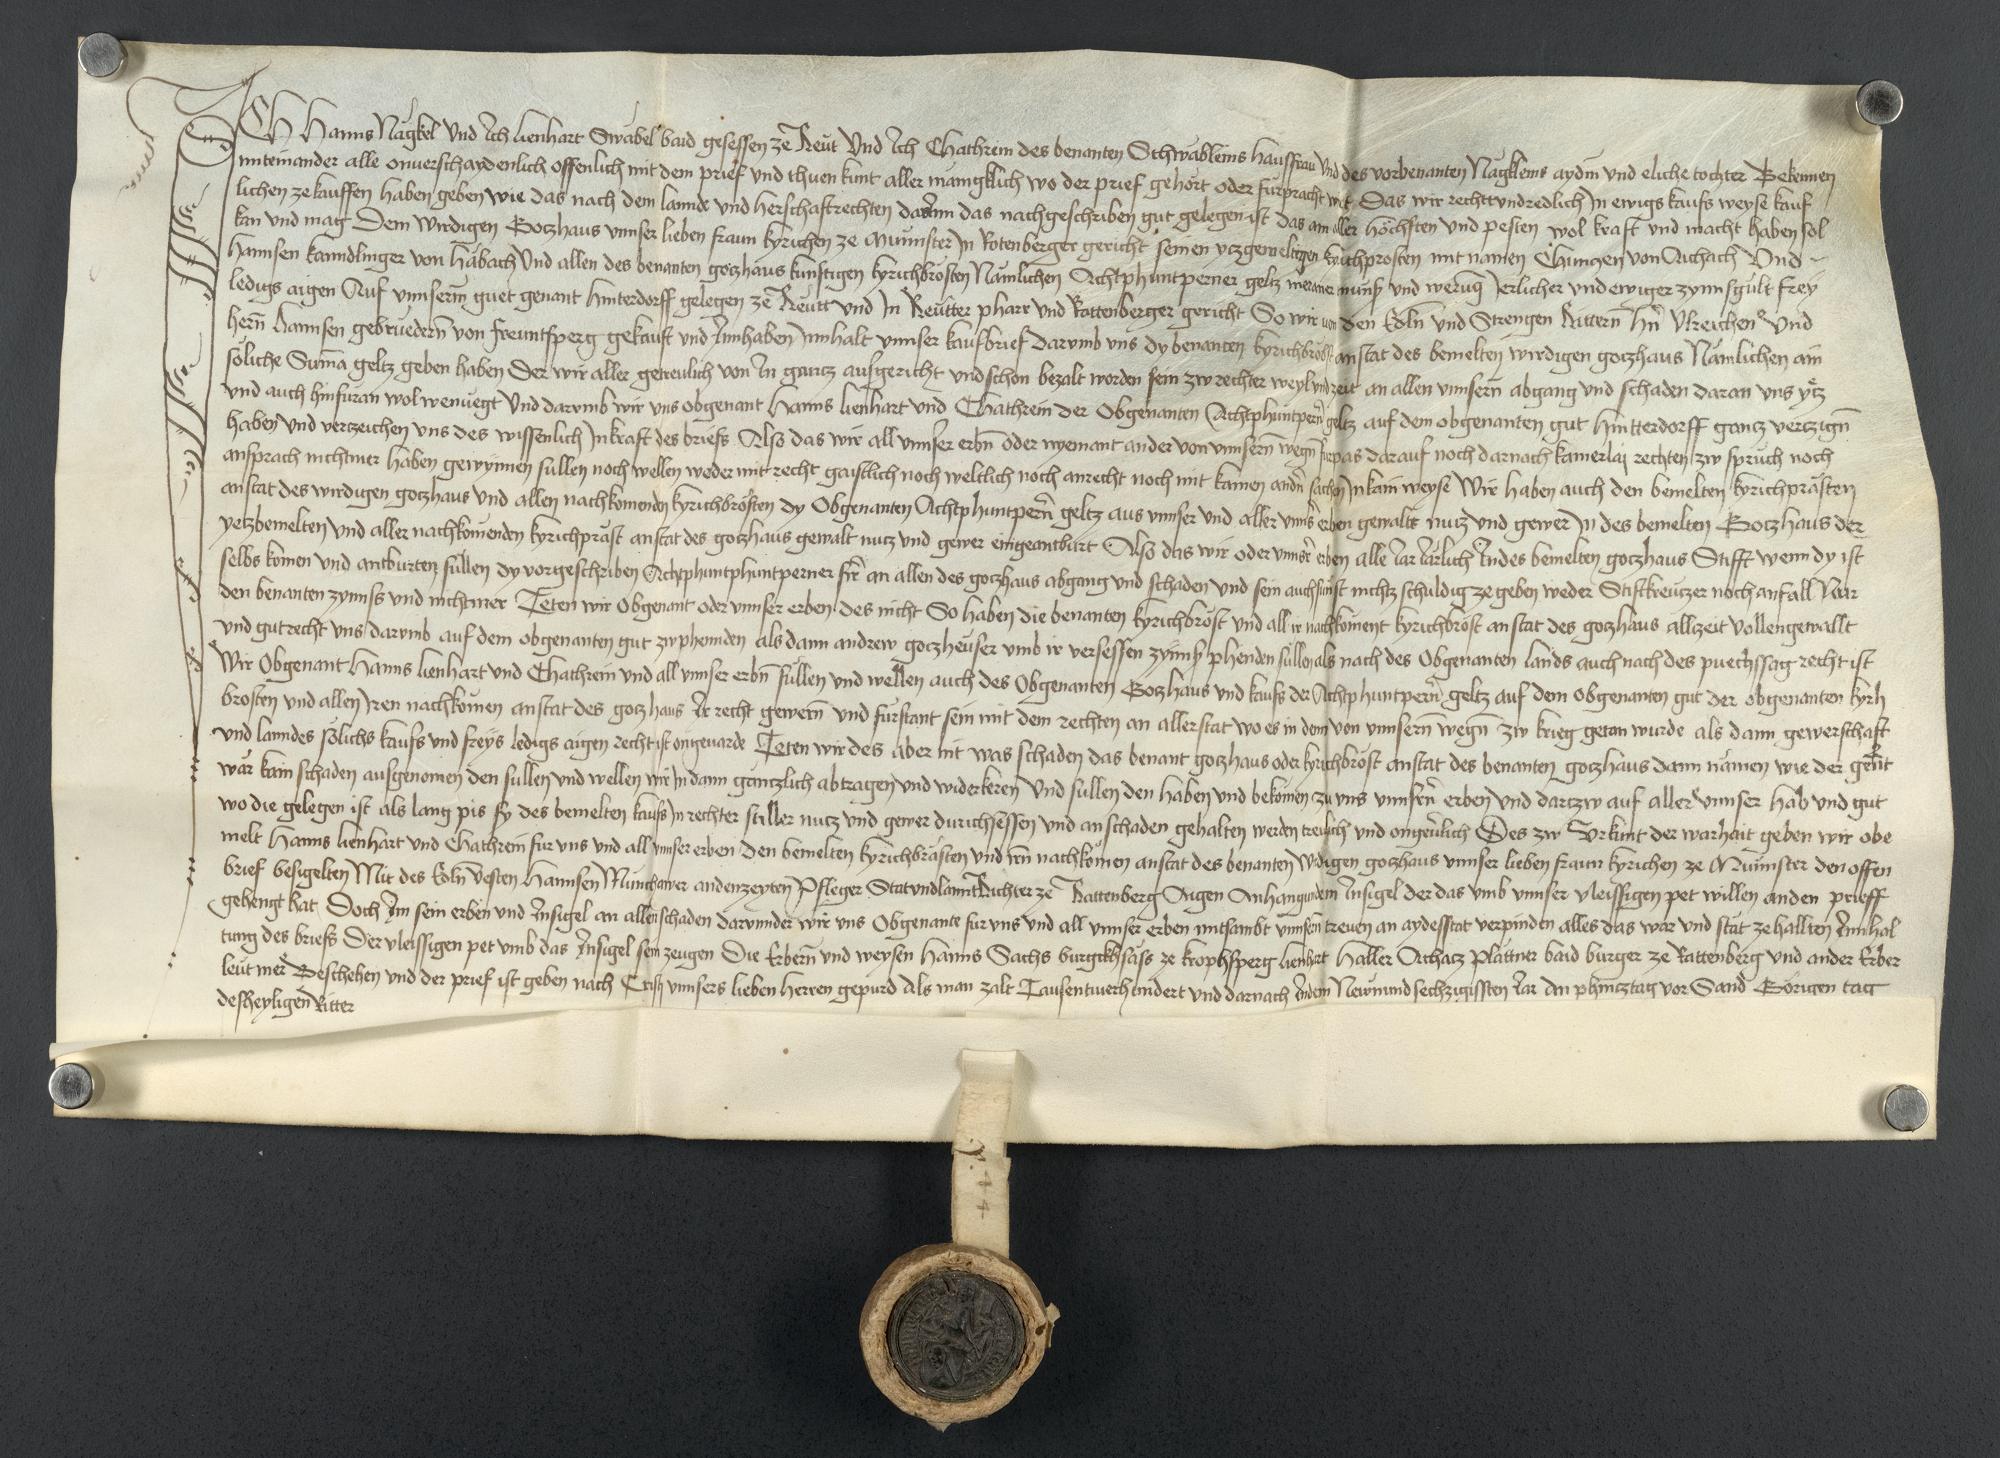 ICH Hanns Nägkel Und Ich lienhart Swäbel baid gesessen ze Reut Und Ich Chathrein des benanten Schwäbleins hausfrau Und des vorbenanten Nägkleins aydm und eliche tochter Bekennen
miteinander alle onverschaydenlich offenlich mit dem prief und thuen kunt aller mänigklich wo der prief gehört oder fürpracht wirt Das wir recht und redlich In ewigs kaufs weyse kauf
lichen ze kauffen haben geben wie das nach dem lannde und herschaftrechten darInn das nachgeschriben gut gelegen ist das am aller höchsten und pesten wol kraft und macht haben sol
kan und mag Dem wirdigen Gotzhaus unnser lieben fraun kyrichen ze Münnster In Rotenberger gericht seinen yczgeweltigen kyrichprosten mit namen Chunczen von Aichach Und
Hannsen kanndlinger von Häbach Und allen des benanten gotzhaus künftigen kyrichbrösten Nämlichen Achtphuntperner geltz meraner münss und werung Jerlicher und ewiger zynnsgült frey
ledigs aigen Auf unnserm guet genant hinterdorff gelegen ze Reutt und In Reutter pharr und Rattenberger gericht So wir von den Edln und Strengen Rittern hrn Ulreichen Und
hern hannsen gebruedern von freuntsperg gekauft und Innhaben Innhalt unnser kaufbrief darumb uns dy benanten kyrichbröbst anstat des bemelten wirdigen gotzhaus Nämlichen ain
söliche Suma geltz geben haben Der wir aller getreulich von In gancz ausgericht und schon bezalt worden sein zw rechter weyl und zeit an allen unnsern abgang und schaden daran uns ytz
und auch hinfuran wol wenuegt Und darumb wir uns obgenant Hanns lienhart und Chathrein der Obgenanten Achtphuntpern geltz auf dem obgenanten gut hintterdorff gancz verczign
haben und verczeichen uns des wissenlich In kraft des briefs Also das wir all unnser erbn oder nyemant ander von unnsern wegn fürpas darauf noch darnach kainerlaj rechten zw spruch noch
ansprach nichtmer haben gewynnen sullen noch wellen weder mit recht gaistlich noch weltlich noch anrecht noch mit kainen andn sachen In kain weyse Wir haben auch den bemelten kyrichprästen
anstat des wirdigen gotzhaus und allen nachkomenden kyrichbrösten dy Obgenanten Achtphuntpern geltz aus unnser und aller unnser erben gewalt nutz und gewer In des bemelten Gotzhaus der
yetzbemelten und aller nachkomenden kyrichpräst anstat des gotzhaus gewalt nutz und gewer eingeantburt Also das wir oder unnser erben alle Iar Iärlich Indes bemelten gotzhaus Stifft wenn dy ist
selbs komen und antburten sullen dy vorgeschriben Achtphuntphuntperner an allen des gotzhaus abgang und schaden und sein auch sunst nichtz schuldig ze geben weder Stiftkreutzer noch anfall Nur
den benanten zynnss und nichtmer Teten wir Obgenant oder unnser erben des nicht So haben die benanten kyrichbröst und all ir nachkoment kyrichbröst anstat des gotzhaus allzeit vollengewallt
und gutrecht uns darumb auf dem obgenanten gut zw phennden als dann andrew gotzheuser umb ir versessen zynnss phenden sullen als nach des Obgenanten lands auch nach des puechssag recht ist
Wir Obgenant Hanns lienhart und Chathrein und all unnser erbn sullen und wellen auch des Obgenanten Gotzhaus und kaufs der Achtphuntpern geltz auf dem obgenanten gut der obgenanten kyrh
brosten und allen Iren nachkomen anstat des gotzhaus Ir recht gewern und fürstant sein mit dem rechten an aller stat wo es in dem von unnsern wegn zw krieg getan wurde als dann gewerschaft
und lanndes sölichs kaufs und freys ledigs aigen recht ist ongevarde Teten wir des aber nit was schaden das benant gotzhaus oder kyrichbröst anstat des benanten gotzhaus dann nämen wie der genent
wär kain schaden ausgenomen den sullen und wellen wir In dann gäntzlich abtragen und widerkeren Und sullen den haben und bekomen zu uns unnsern erben und dartzw auf aller unnser hab und gut
wo die gelegen ist als lang pis sy des bemelten kaufs In rechter stiller nutz und gewer durichsessen und an schaden gehalten werden treulich und ongeverlich Des zw Urkunt der warhait geben wir obe
melt Hanns lienhart und Chathrein für uns und all unnser erben den bemelten kyrichbrästen und irn nachkomen anstat des benanten wirdigen gotzhaus unnser lieben fraun kyrichen ze Münnster den offen
brief besigelten Mit des Edln vesten Hannsen Münchawer andenzeyten Pfleger Stat und lannt Richter ze Rattenberg Aigen Anhangundem Insigel der das umb unnser vleissigen pet willen anden prieff
gehengt hat Doch Im sein erben und Insigel an allen schaden darunnder wir uns Obgenante für uns und all unnser erben mitsambt unnsern treuen an aydesstat verpinden alles das war und stät ze hallten Innhal
tung des briefs Der vleissigen pet umb das Insigel sein zeugen Die Erbern und weysen Hanns Sachs burgkhsäss ze kropfsperg lienhart Haller Achacz Plattner baid burger ze Rattenberg und ander Erber
leut mer Beschehen und der prief ist geben nach Cristj unnsers lieben herren gepurd Als man zalt Tausentvierhundert und darnach Indem Newnundsechzigissten Iar An phincztag vor Sand Görigen tag
desheyligen Ritter